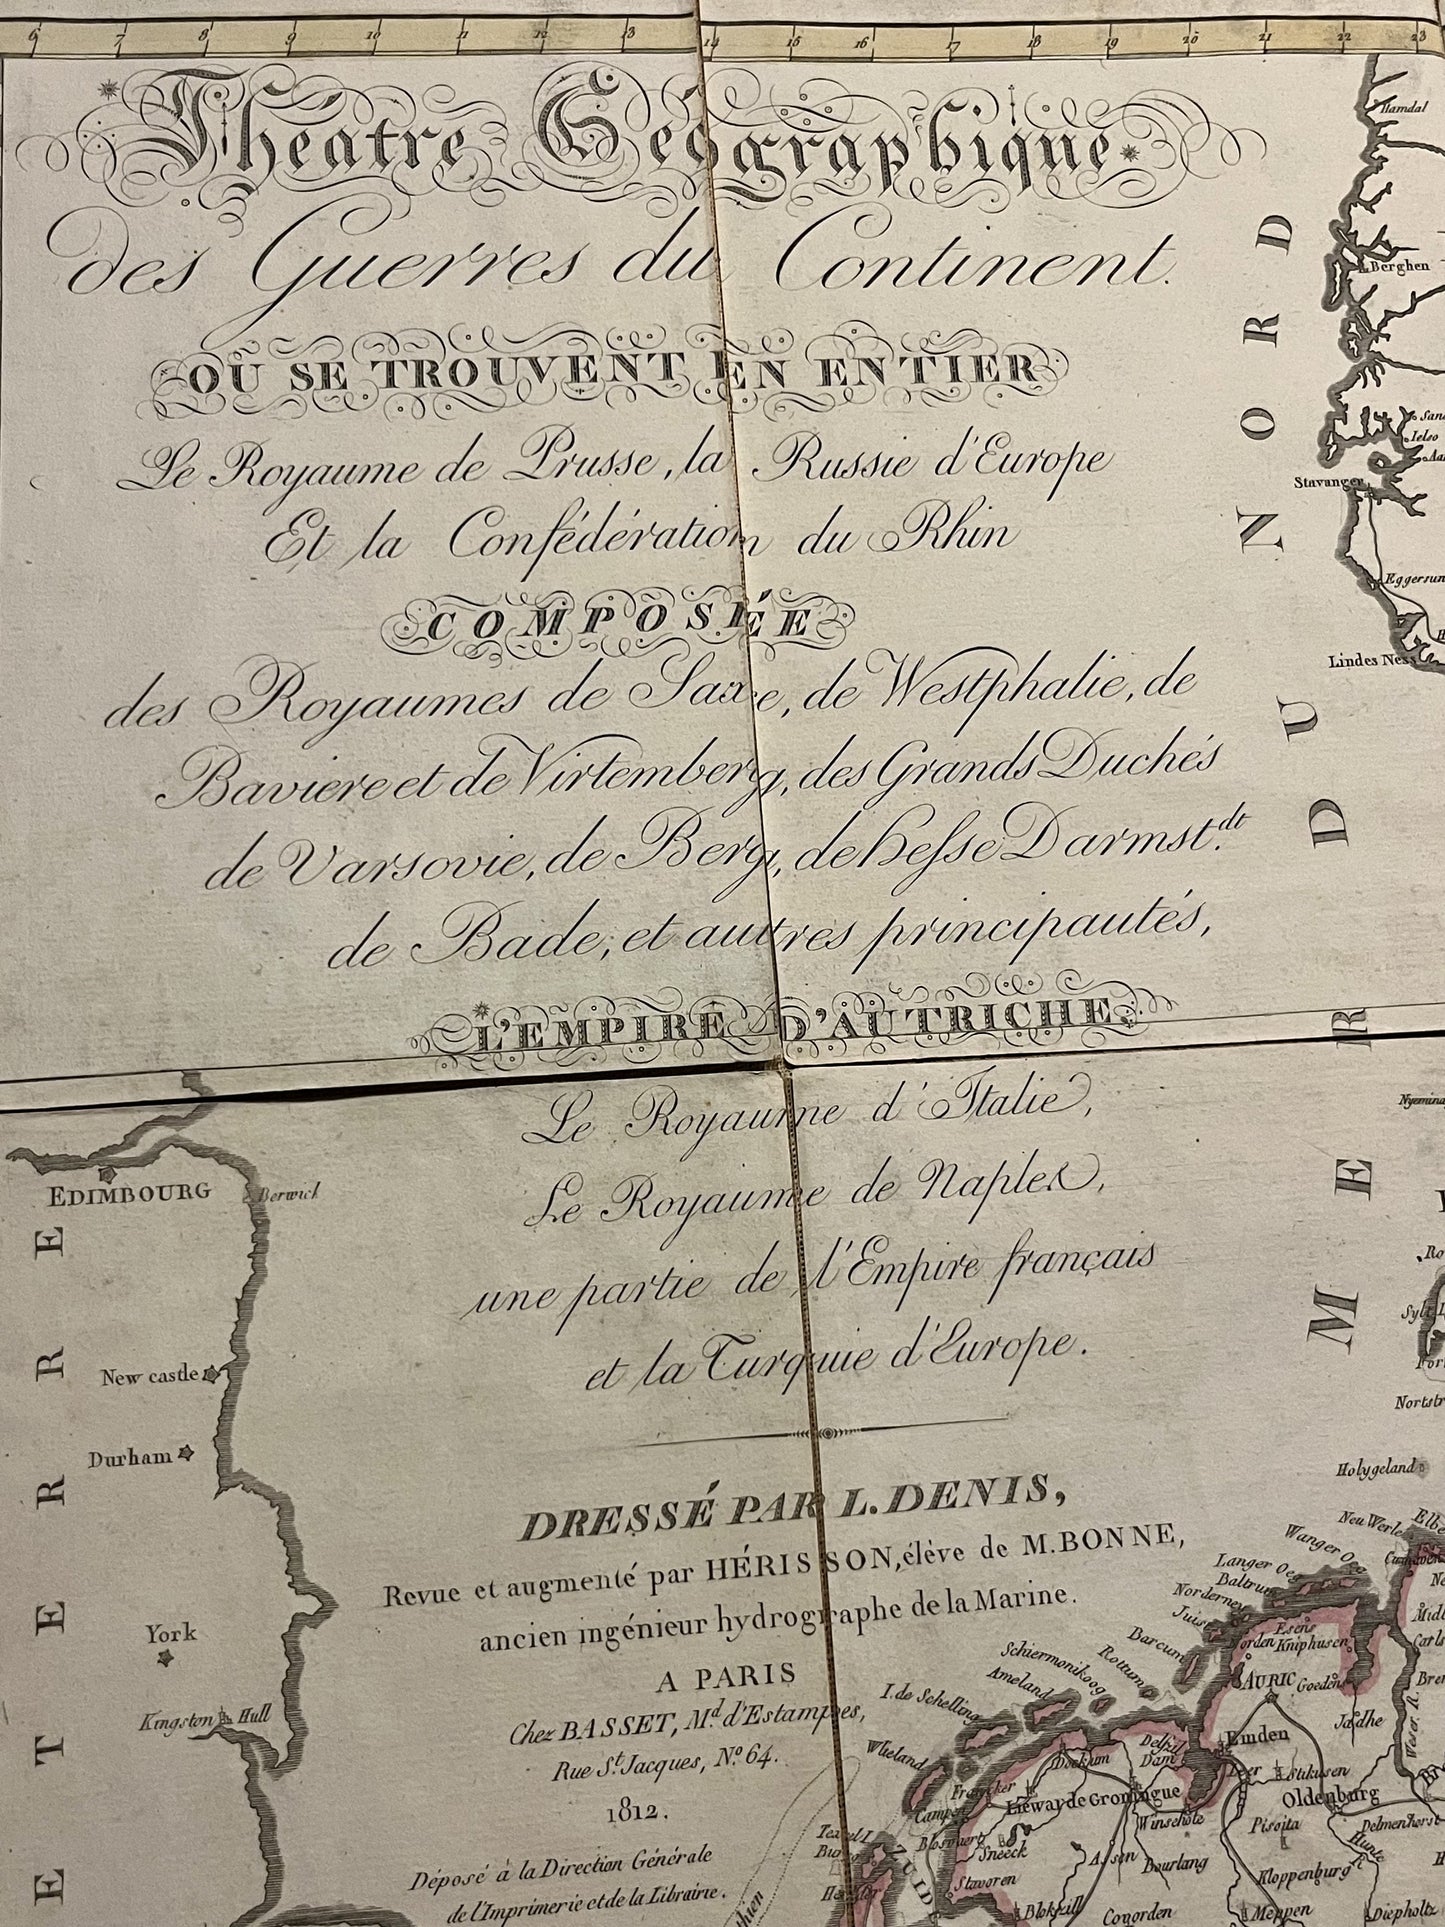 6 7 8 9 10 11 12 13 14 15 16 17 18 19 20 21 22 23
Théatre Géographique
des Guerres du Continent.
OÙ SE TROUVENT EN ENTIER
Le Royaume de Prusse, la Russie d'Europe
Et la Confédération du Rhin
COMPOSÉE
des Royaumes de Saxe, de Westphalie, de
Baviere et de Virtemberg, des Grands Duchés
de Varsovie, de Berg, de Hesse Darmst.dt
de Bade, et autres principautés,
L'EMPIRE D'AUTRICHE
Le Royaume d'Italie,
Le Royaume de Naples,
une partie de l'Empire français
et la Turquie d'Europe.
DRESSÉ PAR L. DENIS,
Revue et augmenté par HÉRISSON, élève de M. BONNE,
ancien ingénieur hydrographe de la Marine.
A PARIS
Chez BASSET, Md. d'Estampes,
Rue St. Jacques, No. 64.
1812.
Déposé à la Direction Générale
de l'Imprimerie et de la Librairie.
MER DU NORD
Hamdal
Berghen
Ielso
Stavanger
Lindes Ness
EDIMBOURG
Berwick
New castle
Durham
York
Kingston Hull
ETERRE
Holygeland
Neu Werle
Wanger Oeg
Langer Oeg
Baltrum
Norderney
Juist
Barcum
Rottum
Schiermonikoog
Ameland
I. de Schelling
Vlieland
Esens
Norden
Kniphusen
AURIC
Goedens
Jadhe
Weser R.
Emden
Delfzil
Dam
Dockum
Francker
Liewarde
Groningue
Leer
Stikusen
Oldenburg
Winschote
Pisoita
Delmenhorst
Hunte
Texel I.
Sneeck
Assen
Bourlang
Kloppenburg
Stavoren
ZUID
Blokzill
Covorden
Meppen
Diepholtz